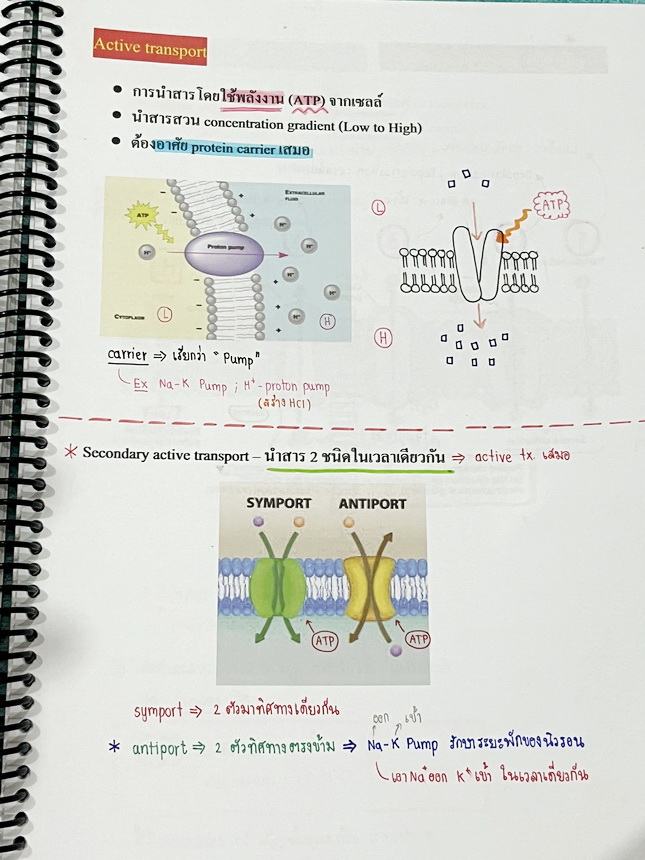 Active transport
• การนำสารโดยใช้พลังงาน (ATP) จากเซลล์
• นำสารสวน concentration gradient (Low to High)
• ต้องอาศัย protein carrier เสมอ
EXTRACELLULAR
FLUID
ATP
Proton pump
H+
H+
H+
H+
H+
H+
CYTOPLASM
L
H
L
ATP
H
carrier ⇒ เรียกว่า "Pump"
Ex Na-K Pump ; H+-proton pump
(สร้าง HCl)
* Secondary active transport – นำสาร 2 ชนิดในเวลาเดียวกัน ⇒ active tx. เสมอ
SYMPORT ANTIPORT
ATP
ATP
symport ⇒ 2 ตัวมาทิศทางเดียวกัน
ออก เข้า
* antiport ⇒ 2 ตัวทิศทางตรงข้าม ⇒ Na-K Pump รักษาระยะพักของนิวรอน
เอา Na+ออก K+เข้า ในเวลาเดียวกัน